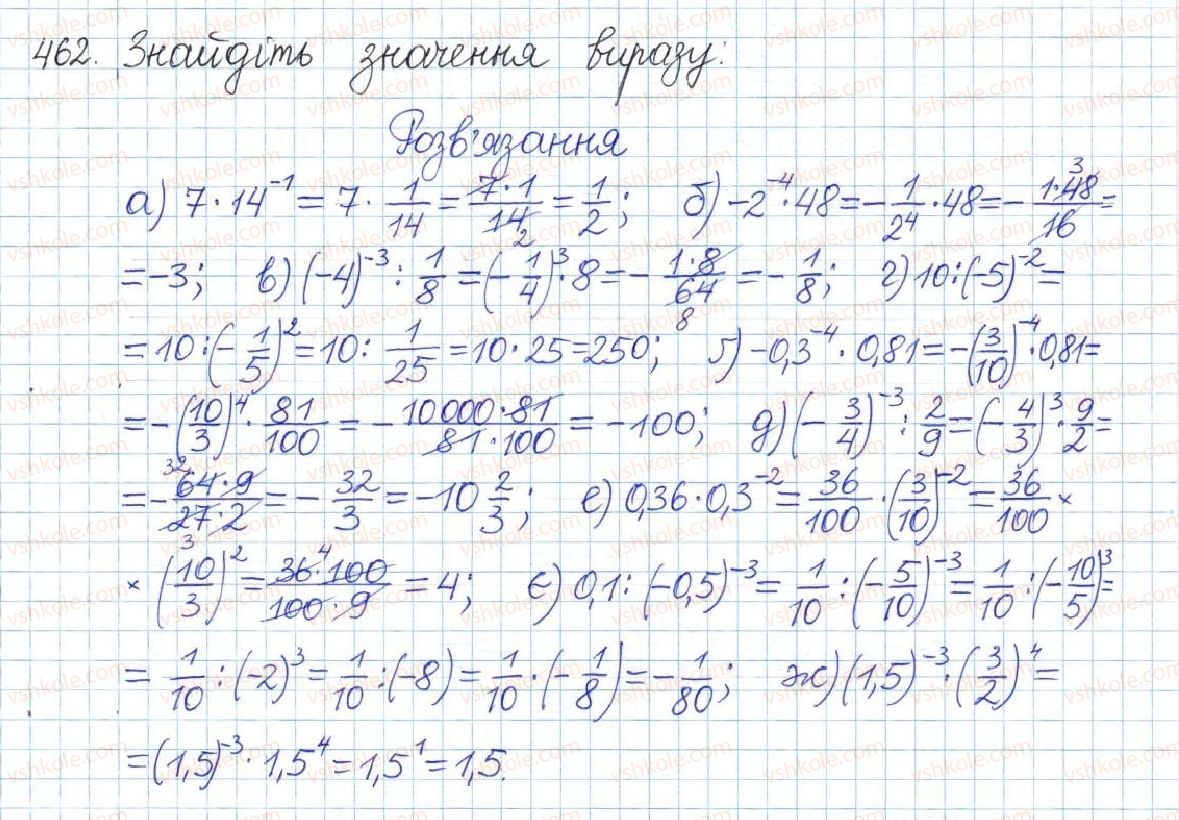 462. Знайдіть значення виразу:
Розв'язання
а) 7·14⁻¹ = 7 · 1/14 = 7·1/14 2 = 1/2; б) -2⁻⁴·48 = -1/2⁴·48 = -1·48 3/16 =
= -3; в) (-4)⁻³ : 1/8 = (-1/4)³·8 = -1·8/64 8 = -1/8; г) 10:(-5)⁻² =
= 10:(-1/5)² = 10: 1/25 = 10·25 = 250; ґ) -0,3⁻⁴·0,81 = -(3/10)⁻⁴·0,81 =
= -(10/3)⁴·81/100 = -10000·81/81·100 = -100; д) (-3/4)⁻³ : 2/9 = (-4/3)³·9/2 =
= -32 64·9/27·2 3 = -32/3 = -10 2/3; е) 0,36·0,3⁻² = 36/100·(3/10)⁻² = 36/100 ×
× (10/3)² = 36 4·100/100·9 = 4; є) 0,1:(-0,5)⁻³ = 1/10:(-5/10)⁻³ = 1/10:(-10/5)³ =
= 1/10:(-2)³ = 1/10:(-8) = 1/10·(-1/8) = -1/80; ж) (1,5)⁻³·(3/2)⁴ =
= (1,5)⁻³·1,5⁴ = 1,5¹ = 1,5.
vshkole.com